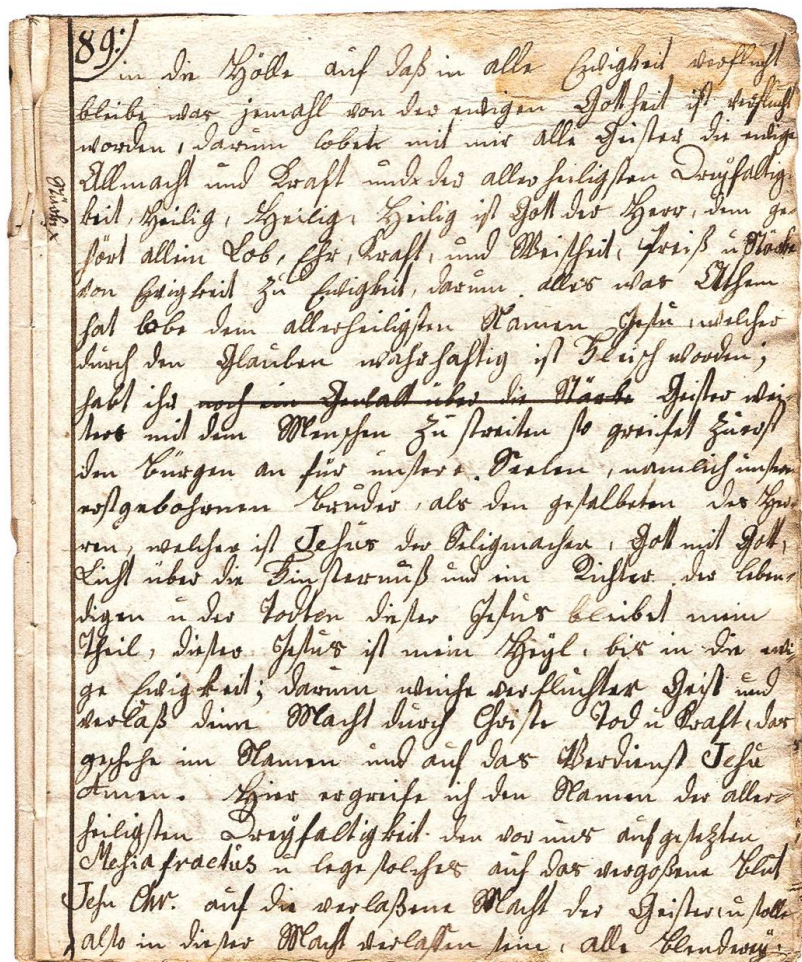 89:
in die Hölle auf daß in alle Ewigkeit verflucht
bleibe was jemahl von der ewigen Gottheit ist verflucht
worden, darum lobet mit mir alle Geister die ewige
Allmacht und Kraft und der allerheiligsten Dreyfaltig-
keit, Heilig, Heilig, Heilig ist Gott der Herr, dem ge-
hört allein Lob, Ehr, Kraft, und Weisheit, Preiß u Stärke
von Ewigkeit zu Ewigkeit, darum alles was Athem
hat lobe dem allerheiligsten Namen Jesu, welcher
durch den Glauben wahrhaftig ist Fleisch worden;
habt ihr noch ein Gewalt über die Stärke Geister wei-
ters mit dem Menschen zu streiten so greifet zuerst
den Bürgen an für unsere Seelen, namlich unsern
erstgebohrnen Bruder, als den gesalbeten des Her-
ren, welcher ist Jesus der Seligmacher, Gott mit Gott,
Licht über die Finsternuß und ein Richter der leben-
digen u der Todten dieser Jesus bleibet mein
Theil, dieser Jesus ist mein Heyl, bis in die ewi-
ge Ewigkeit; darum weiche verfluchter Geist und
verlaß deine Macht durch Christe Tod u Kraft, das
geschehe im Namen und auf das Verdienst Jesu
Amen. Hier ergreife ich den Namen der aller-
heiligsten Dreyfaltigkeit den vor uns aufgesetzten
u lege solches auf das vergoßene Blut
Jesu Chr. auf die verlaßene Macht der Geister, u solle
also in dieser Macht verlassen sein, alle Blenderey: